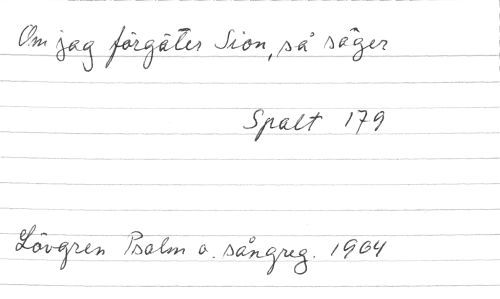 Om jag förgäter Sion, så säger
Spalt 179
Lövgren Psalm o. sångreg. 1964